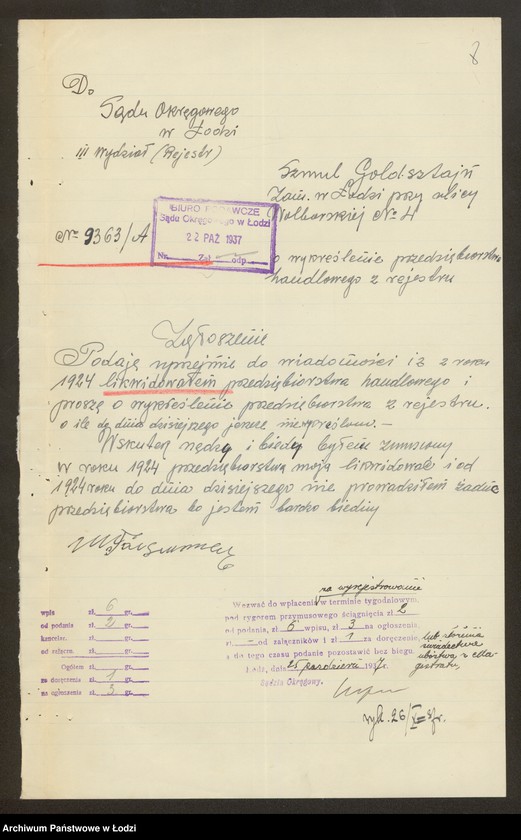 8
Do
Sądu Okręgowego
w Łodzi
III Wydział (Rejestr)
Szmul Goldsztajn
Zam. w Łodzi przy ulicy
Wolborskiej № 4
№ 9363/A
BIURO PODAWCZE
Sądu Okręgowego w Łodzi
22 PAŹ 1937
Nr. Zał. odp.
o wykreślenie przedsiębiorstwa
handlowego z rejestru
Zgłoszenie
Podaję uprzejmie do wiadomości iż z roku
1924 likwidowałem przedsiębiorstwa handlowego i
proszę o wykreślenie przedsiębiorstwa z rejestru.
o ile do dnia dzisiejszego jeszcze
Wskutek nędzy i biedy byłem zmuszony
w roku 1924 przedsiębiorstwa moja likwidować i od
1924 roku do dnia dzisiejszego nie prowadziłem żadne
przedsiębiorstwa bo jestem bardzo biedny
wpis zł. 6
od podania zł. 2
kancelar. zł.
od załączn. zł.
Ogółem zł.
za doręczenie zł. 1
na ogłoszenia zł. 3
na wyrejestrowanie
Wezwać do wpłacenia w terminie tygodniowym
pod rygorem przymusowego ściągnięcia zł. 2
od podania, zł. 6 wpisu, zł. 3 na ogłoszenia,
zł. - od załączników i zł. 1 za doręczenie,
a do tego czasu podanie pozostawić bez biegu.
lub złożenia
świadectwa
ubóstwa z Magistratu
Łódź, dnia 25 października 1937 r.
Sędzia Okręgowy.
wyk. 26/X
Archiwum Państwowe w Łodzi